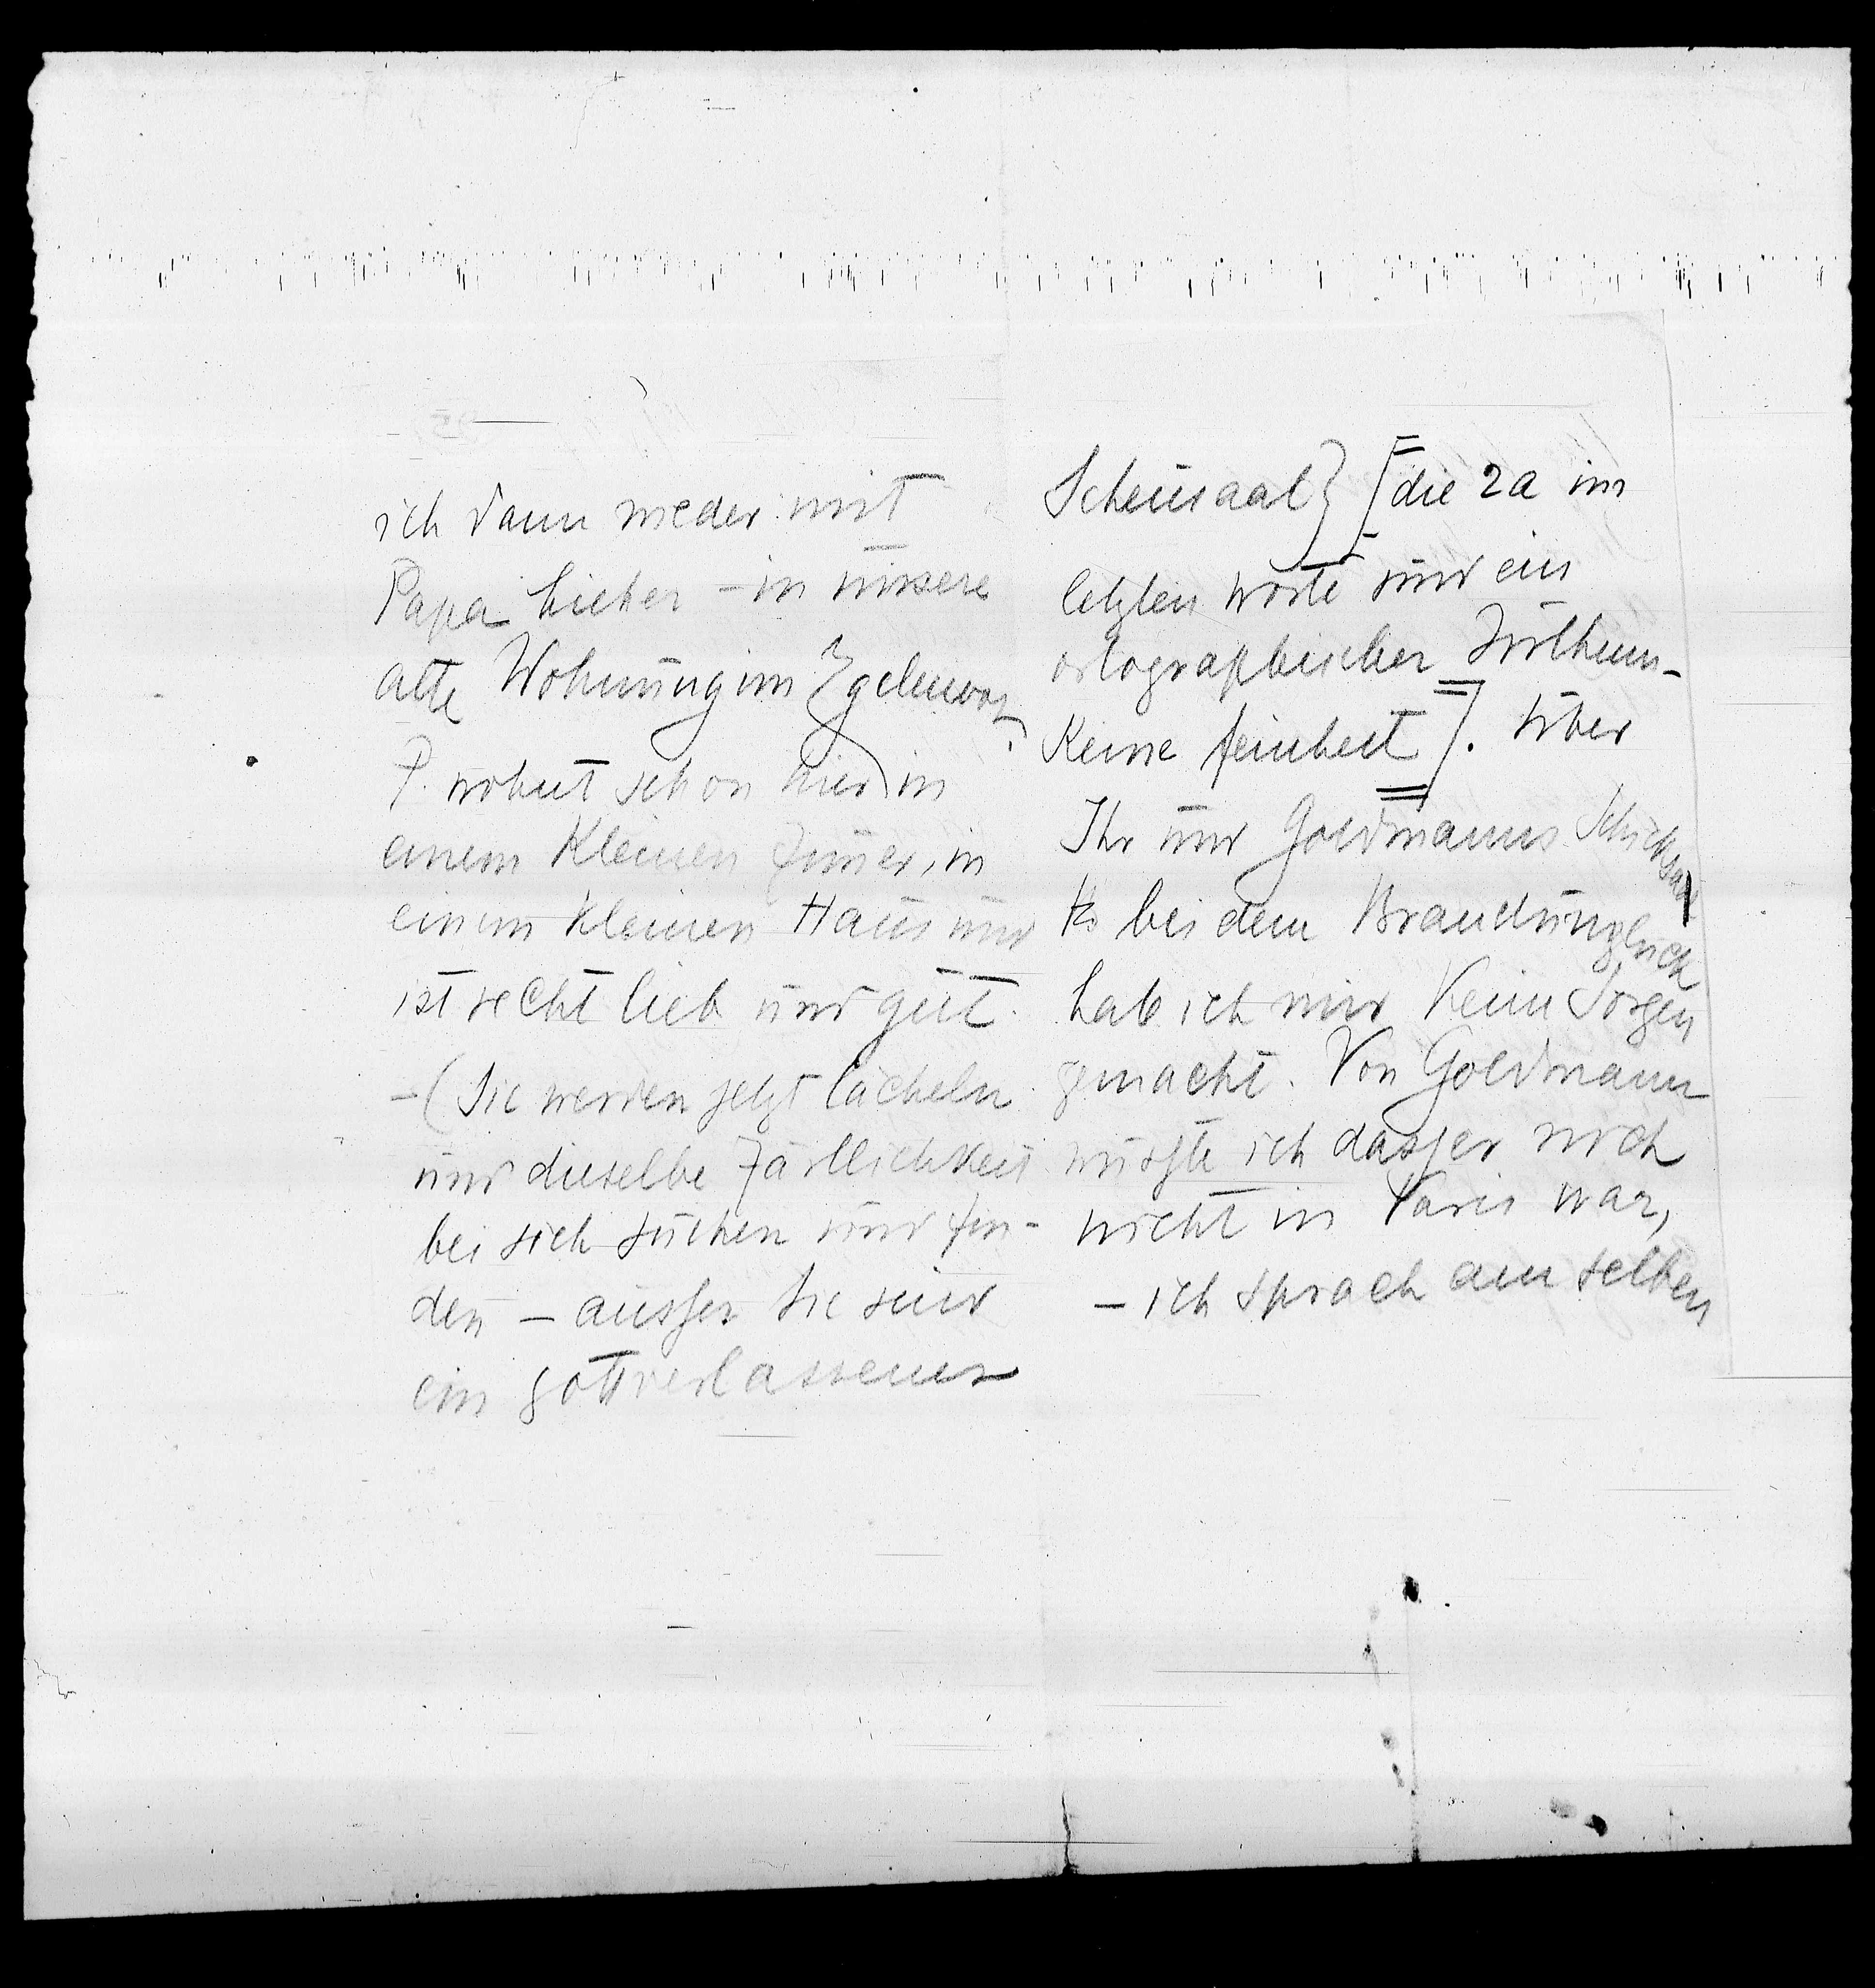 ich dann wieder mit
Papa hieher – in unsere
alte Wohnung im Egelmoos.
P. wohnt schon hier in
einem kleinen Zimer, in
einem kleinen Haus und
ist recht lieb und gut.
– (Sie werden jetzt lächeln
und dieselbe Zärtlichkeit
bei sich suchen und fin-
den – ausser Sie sind
ein gottverlassenes
Scheusaal) [die 2a im
letzten Worte sind ein
ortographischer Irrthum –
keine Feinheit]. Über
Ihr und Goldmanns Schicksal
bei dem Brandunglück
hab ich mir kein Sorgen
gemacht. Von Goldmann
wusste ich dass er noch
nicht in Paris war,
– ich sprach am selben